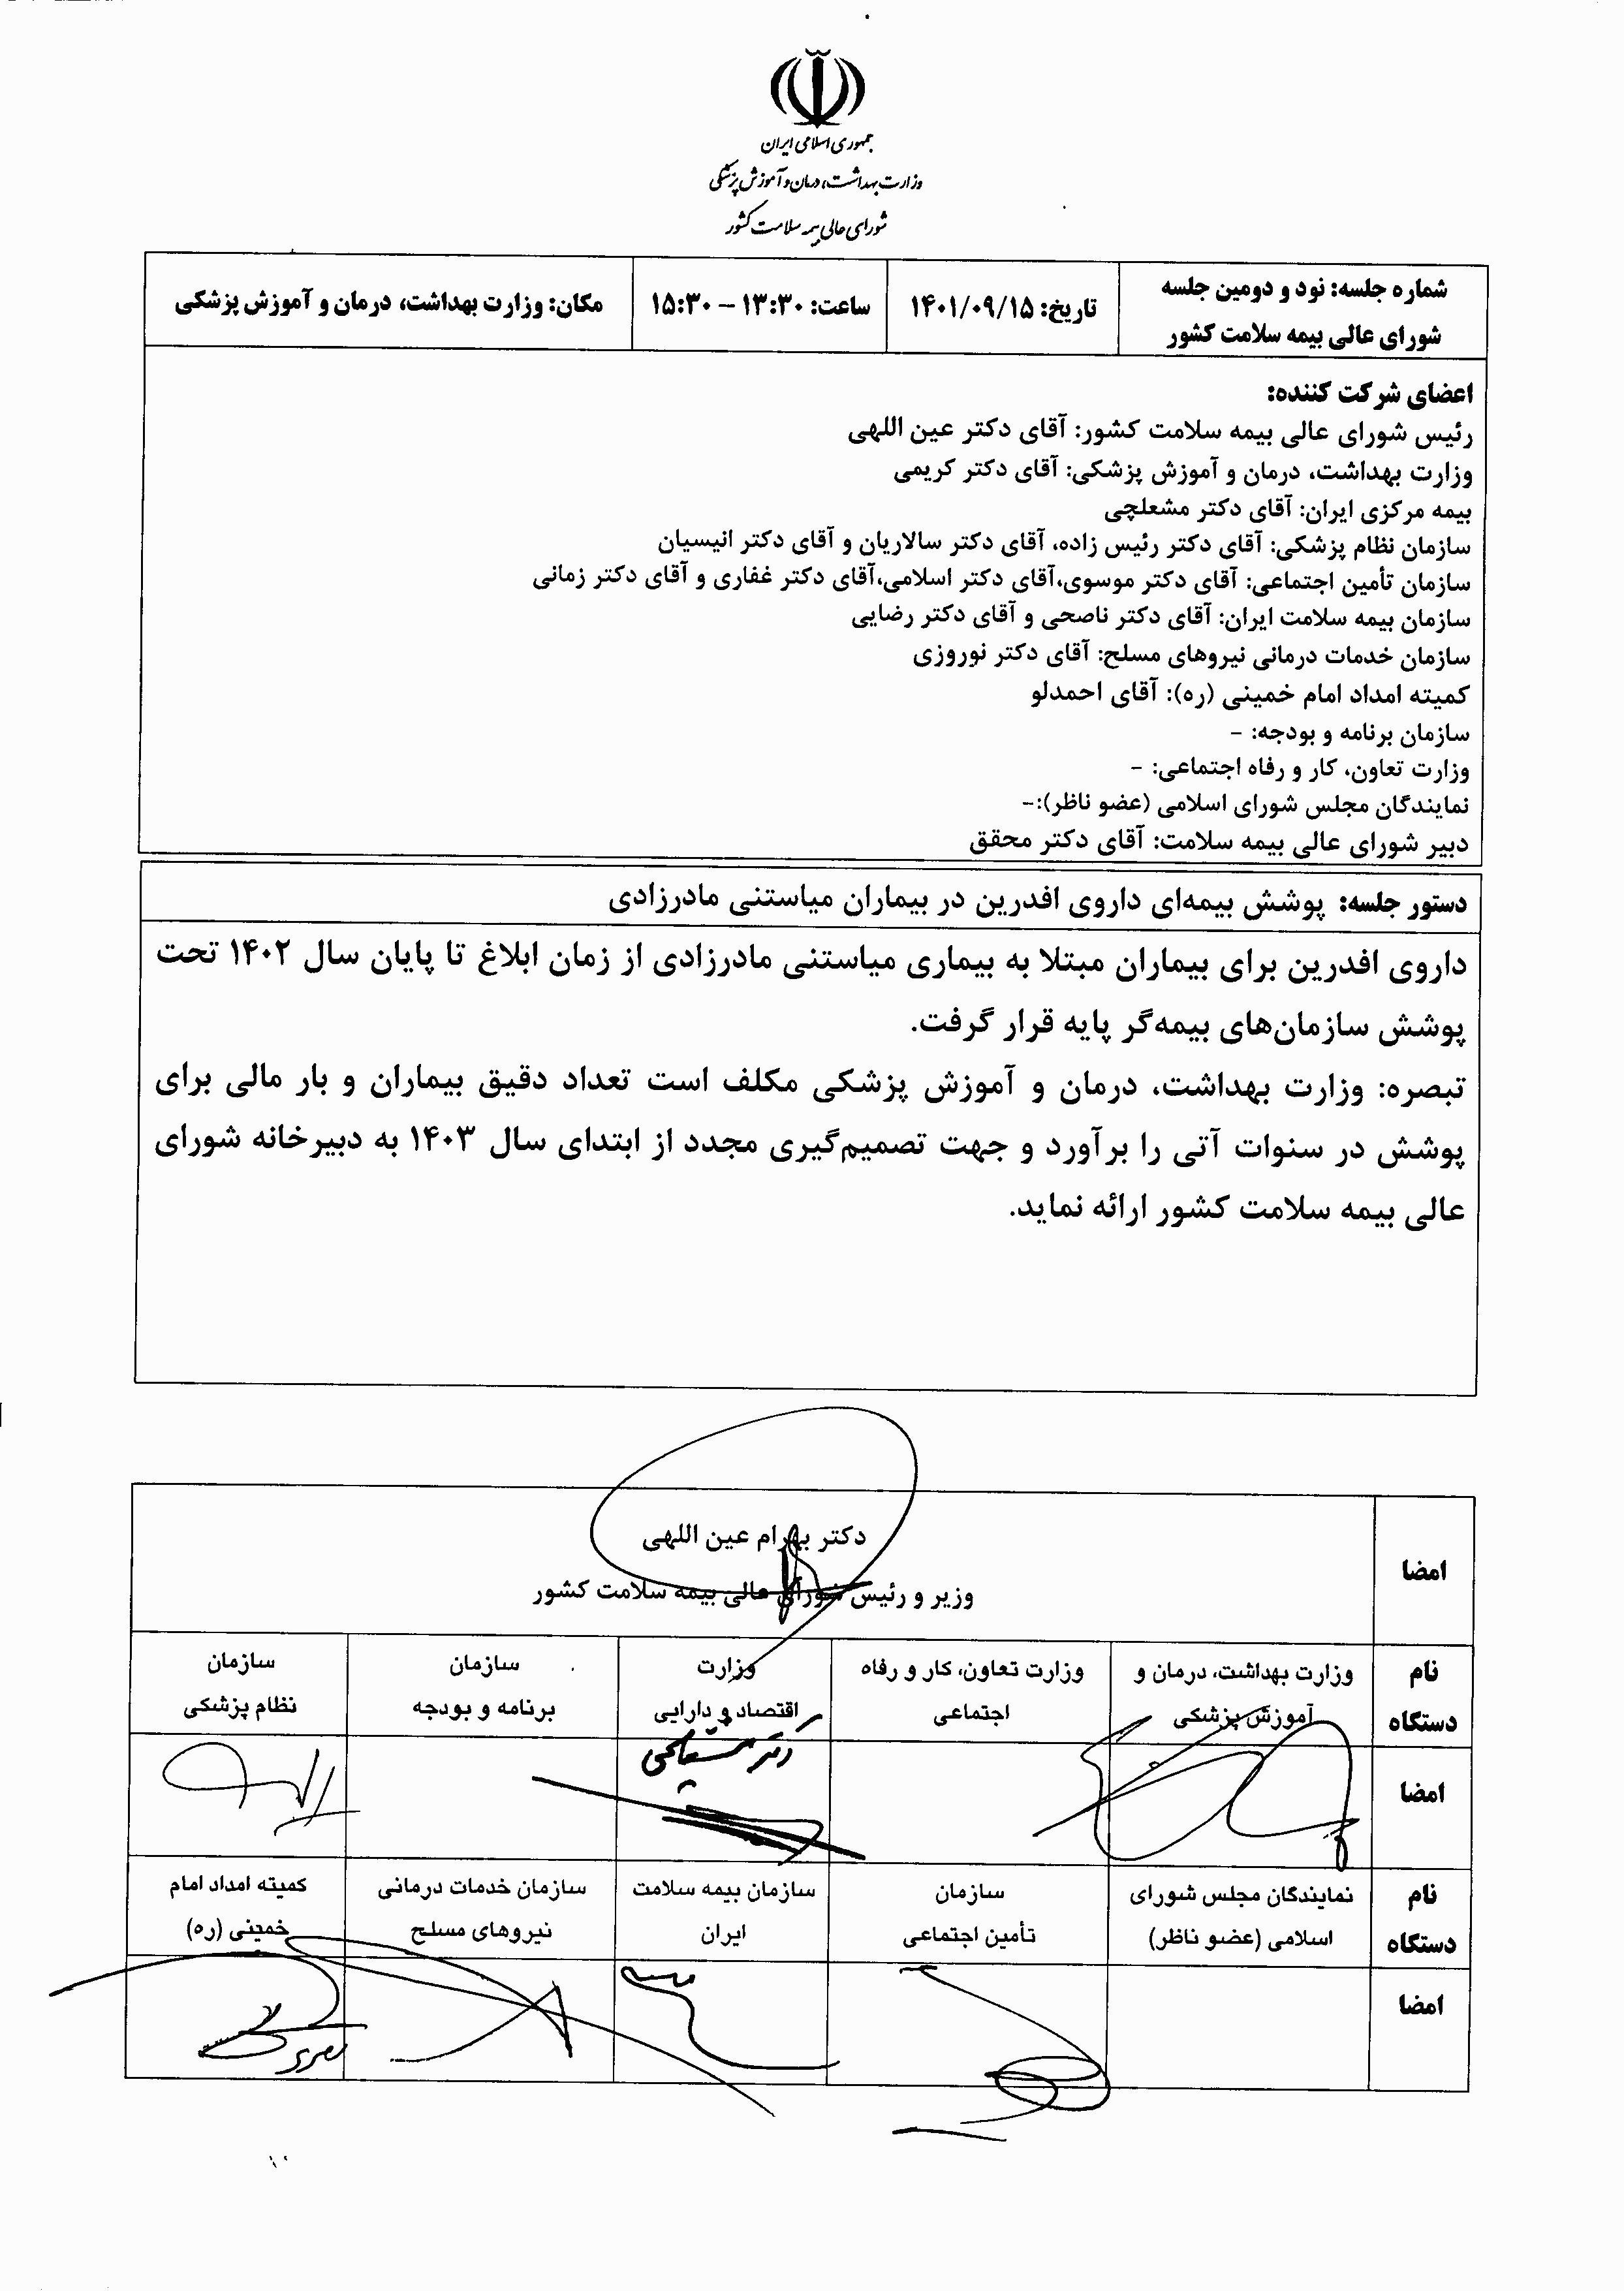 جمهوری اسلامی ایران
وزارت بهداشت، درمان و آموزش پزشکی
شورای عالی بیمه سلامت کشور
شماره جلسه: نود و دومین جلسه
شورای عالی بیمه سلامت کشور
تاریخ: ۱۴۰۱/۰۹/۱۵
ساعت: ۱۳:۳۰ – ۱۵:۳۰
مکان: وزارت بهداشت، درمان و آموزش پزشکی
اعضای شرکت کننده:
رئیس شورای عالی بیمه سلامت کشور: آقای دکتر عین اللهی
وزارت بهداشت، درمان و آموزش پزشکی: آقای دکتر کریمی
بیمه مرکزی ایران: آقای دکتر مشعلچی
سازمان نظام پزشکی: آقای دکتر رئیس زاده، آقای دکتر سالاریان و آقای دکتر انیسیان
سازمان تأمین اجتماعی: آقای دکتر موسوی،آقای دکتر اسلامی،آقای دکتر غفاری و آقای دکتر زمانی
سازمان بیمه سلامت ایران: آقای دکتر ناصحی و آقای دکتر رضایی
سازمان خدمات درمانی نیروهای مسلح: آقای دکتر نوروزی
کمیته امداد امام خمینی (ره): آقای احمدلو
سازمان برنامه و بودجه: -
وزارت تعاون، کار و رفاه اجتماعی: -
نمایندگان مجلس شورای اسلامی (عضو ناظر):-
دبیر شورای عالی بیمه سلامت: آقای دکتر محقق
دستور جلسه: پوشش بیمه‌ای داروی افدرین در بیماران میاستنی مادرزادی
داروی افدرین برای بیماران مبتلا به بیماری میاستنی مادرزادی از زمان ابلاغ تا پایان سال ۱۴۰۲ تحت
پوشش سازمان‌های بیمه‌گر پایه قرار گرفت.
تبصره: وزارت بهداشت، درمان و آموزش پزشکی مکلف است تعداد دقیق بیماران و بار مالی برای
پوشش در سنوات آتی را برآورد و جهت تصمیم‌گیری مجدد از ابتدای سال ۱۴۰۳ به دبیرخانه شورای
عالی بیمه سلامت کشور ارائه نماید.
امضا
دکتر بهرام عین اللهی
وزیر و رئیس شورای عالی بیمه سلامت کشور
نام
دستگاه
وزارت بهداشت، درمان و
آموزش پزشکی
وزارت تعاون، کار و رفاه
اجتماعی
وزارت
اقتصاد و دارایی
سازمان
برنامه و بودجه
سازمان
نظام پزشکی
امضا
دکتر مشعلچی
نام
دستگاه
نمایندگان مجلس شورای
اسلامی (عضو ناظر)
سازمان
تأمین اجتماعی
سازمان بیمه سلامت
ایران
سازمان خدمات درمانی
نیروهای مسلح
کمیته امداد امام
خمینی (ره)
امضا